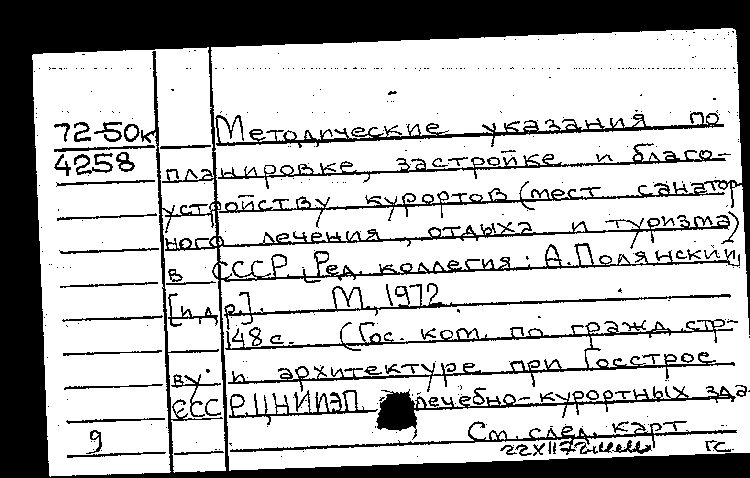 72-50к Методические указания по
4258 планировке, застройке и благо-
устройству курортов (мест санатор
ного лечения, отдыха и туризма)
в СССР. [Ред. коллегия: А. Полянский,
[и др.]. М., 1972.
148 с. (Гос. ком. по гражд. стр-
ву и архитектуре при Госстрое
СССР. ЦНИИЭП лечебно-курортных зда
9 См. след. карт
22XII72 ГС